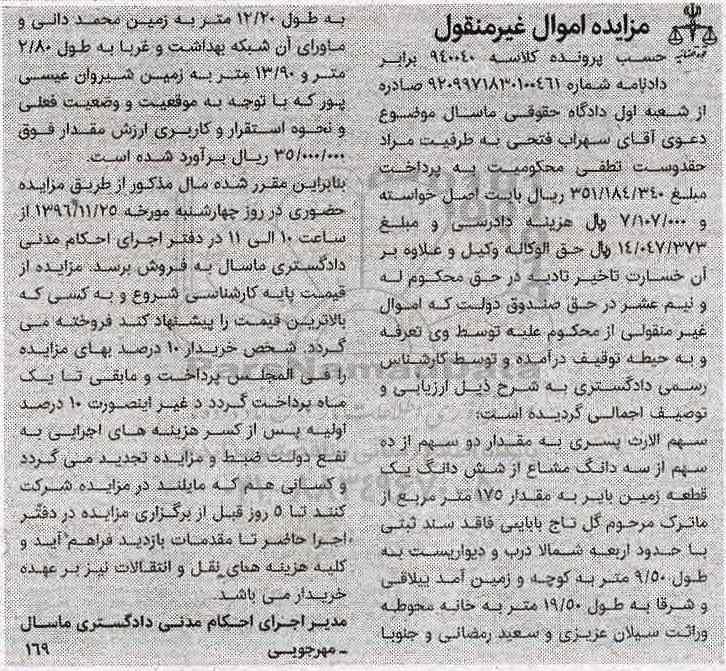 مزایده اموال غیرمنقول
حسب پرونده کلاسه ۹۴۰۰۴۰ برابر
دادنامه شماره ۹۲۰۹۹۷۱۸۳۰۱۰۰۴۶۱ صادره
از شعبه اول دادگاه حقوقی ماسال موضوع
دعوی آقای سهراب فتحی به طرفیت مراد
حقدوست تطفی محکومیت به پرداخت
مبلغ ۳۵۱/۱۸۴/۳۴۰ ریال بابت اصل خواسته
و ۷/۱۰۷/۰۰۰ ریال هزینه دادرسی و مبلغ
۱۴/۰۴۷/۳۷۳ ریال حق الوکاله وکیل و علاوه بر
آن خسارت تاخیر تادیه در حق محکوم له
و نیم عشر در حق صندوق دولت که اموال
غیر منقولی از محکوم علیه توسط وی تعرفه
و به حیطه توقیف درآمده و توسط کارشناس
رسمی دادگستری به شرح ذیل ارزیابی و
توصیف اجمالی گردیده است:
سهم الارث پسری به مقدار دو سهم از ده
سهم از سه دانگ مشاع از شش دانگ یک
قطعه زمین بایر به مقدار ۱۷۵ متر مربع از
ماترک مرحوم گل تاج بابایی فاقد سند ثبتی
با حدود اربعه شمالا درب و دیواریست به
طول ۹/۵۰ متر به کوچه و زمین آمد ییلاقی
و شرقا به طول ۱۹/۵۰ متر به خانه محوطه
وراثت سیلان عزیزی و سعید رمضانی و جنوبا
به طول ۱۲/۲۰ متر به زمین محمد دانی و
ماورای آن شبکه بهداشت و غربا به طول ۲/۸۰
متر و ۱۳/۹۰ متر به زمین شیروان عیسی
پور که با توجه به موقعیت و وضعیت فعلی
و نحوه استقرار و کاربری ارزش مقدار فوق
۳۵/۰۰۰/۰۰۰ ریال برآورد شده است.
بنابراین مقرر شده مال مذکور از طریق مزایده
حضوری در روز چهارشنبه مورخه ۱۳۹۶/۱۱/۲۵ از
ساعت ۱۰ الی ۱۱ در دفتر اجرای احکام مدنی
دادگستری ماسال به فروش برسد. مزایده از
قیمت پایه کارشناسی شروع و به کسی که
بالاترین قیمت را پیشنهاد کند فروخته می
گردد. شخص خریدار ۱۰ درصد بهای مزایده
را فی المجلس پرداخت و مابقی تا یک
ماه پرداخت گردد د غیر اینصورت ۱۰ درصد
اولیه پس از کسر هزینه های اجرایی به
نفع دولت ضبط و مزایده تجدید می گردد
و کسانی هم که مایلند در مزایده شرکت
کنند تا ۵ روز قبل از برگزاری مزایده در دفتر
اجرا حاضر تا مقدمات بازدید فراهم آید و
کلیه هزینه های نقل و انتقالات نیز بر عهده
خریدار می باشد.
مدیر اجرای احکام مدنی دادگستری ماسال
ـ مهرجویی
۱۶۹